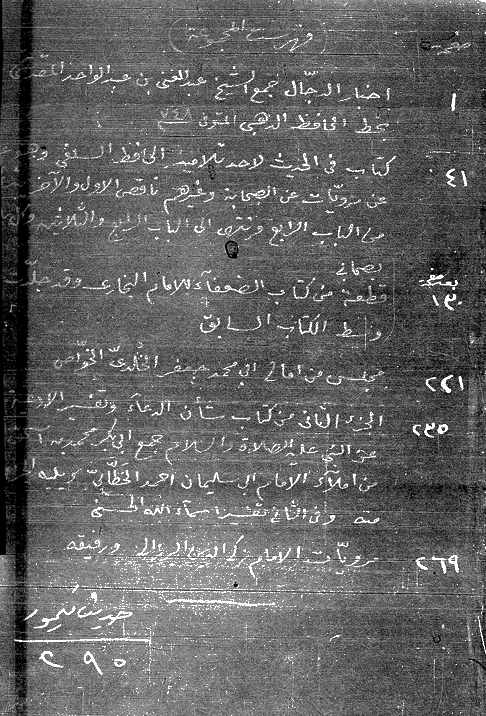 صفحة فهرست المجموعة
١ اخبار الدجّال جمع الشيخ عبد الغني بن عبد الواحد المقدسي
بخط الحافظ الذهبي المتوفى ٧٤٨
٤١ كتاب في الحديث لاحد تلاميذ الحافظ السلفي وهو
من مرويّات عن الصحابة وغيرهم ناقص الاول والآخر
من الباب الرابع وتنتهي الى الباب الرابع والثلاثين
١٣٠ قطعة من كتاب الضعفآء للامام البخاري وقد
وسط الكتاب السابق
٢٢١ مجلس من امالي ابي محمد جعفر الخُلديّ الخوّاص
٢٣٥ الجزء الثاني من كتاب شأن الدعآء وتفسير الادعية
عن النبي عليه الصلاة والسلام جمع ابي بكر محمد بن
من املآء الامام ابي سليمان احمد الخطّابيّ
منه وفي الثاني تفسير اسمآء الله الحسنى
٢٦٩ مرويّات الامام ورفيقه
حديث تيمور
٢٩٥